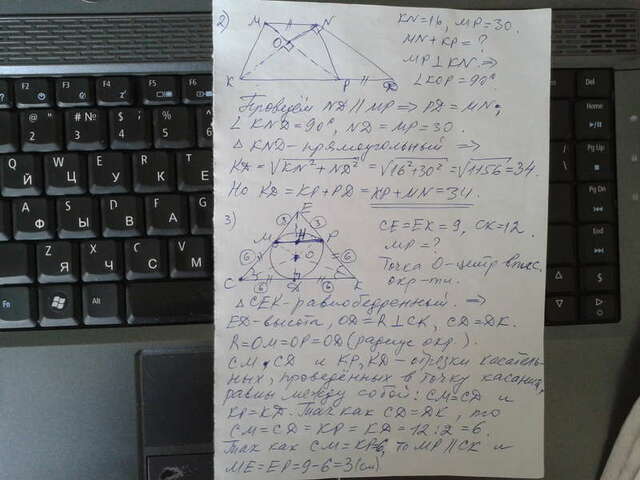 2)
M
N
O
K
P
D
KN=16, MP=30.
MN+KP=?
MP⊥KN ⇒
∠KOP=90°
Проведём ND∥MP ⇒ PD=MN;
∠KND=90°, ND=MP=30.
△KND-прямоугольный ⇒
KD=√KN²+ND²=√16²+30²=√1156=34.
Но KD=KP+PD=KP+MN=34.
3)
E
3
3
M
P
O
6
6
C
6
D
6
K
CE=EK=9, CK=12.
MP=?
Точка O-центр впис.
окр-ти.
△CEK-равнобедренный. ⇒
ED-высота, OD=R⊥CK, CD=DK.
R=OM=OP=OD (радиус окр.).
CM, CD и KP, KD-отрезки касатель-
ных, проведённых в точку касания,
равны между собой: CM=CD и
KP=KD. Так как CD=DK, то
CM=CD=KP=KD=12:2=6.
Так как CM=KP=6, то MP∥CK и
ME=EP=9-6=3(см)
Del
Home
Pg Up
Pg Dn
End
Fn
Alt
Q Й
W Ц
E У
A Ф
S Ы
Z Я
X Ч
C С
V М